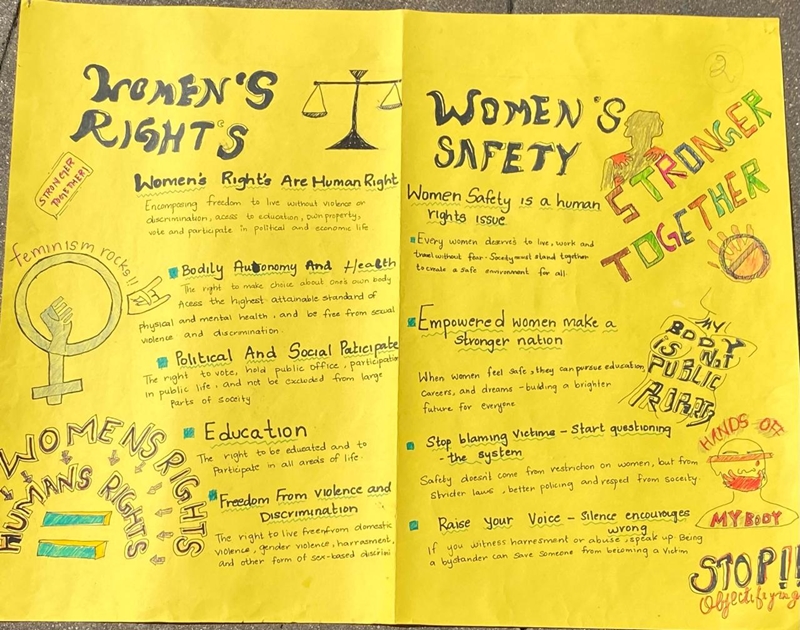 WOMEN'S
RIGHT'S
STRONGER
TOGETHER!
Women's Right's Are Human Right
Encomposing freedom to live without violence or
discrimination, acess to education, own property,
vote and participate in political and economic life
feminism rocks!!
Bodily Autonomy And Health
The right to make choice about one's own body
Acess the highest attainable standard of
physical and mental health, and be free from sexual
violence and discrimination.
Political And Social Paticipate
The right to vote, hold public office, participation
in public life, and not be excluded from large
Parts of soceity
Education
The right to be educated and to
Participate in all areas of life.
Freedom From violence and
Discrimination
The right to live free from domestic
violence, gender violence, harrasment,
and other form of sex-based discrimi
WOMENS RIGHTS
HUMANS RIGHTS
2
WOMEN'S
SAFETY
STRONGER
TOGETHER
Women Safety is a human
rights issue
Every women deserves to live, work and
travel without fear. Socety must stand together
to create a safe environment for all.
Empowered women make a
stronger nation
When women feel safe, they can pursue education,
careers, and dreams - building a brighter
future for everyone
MY
BODY
IS NOT
PUBLIC
Stop blaming victims - Start questioning
- the system
Safety doesn't come from restriction on women, but from
Strider laws, better policing and respect from soceity.
Raise your Voice - Silence encourages
wrong
If you witness harresment or abuse, speak up. Being
a bystander can save someone from becoming a victim
HANDS OFF
MY BODY
STOP!!
Objectifying